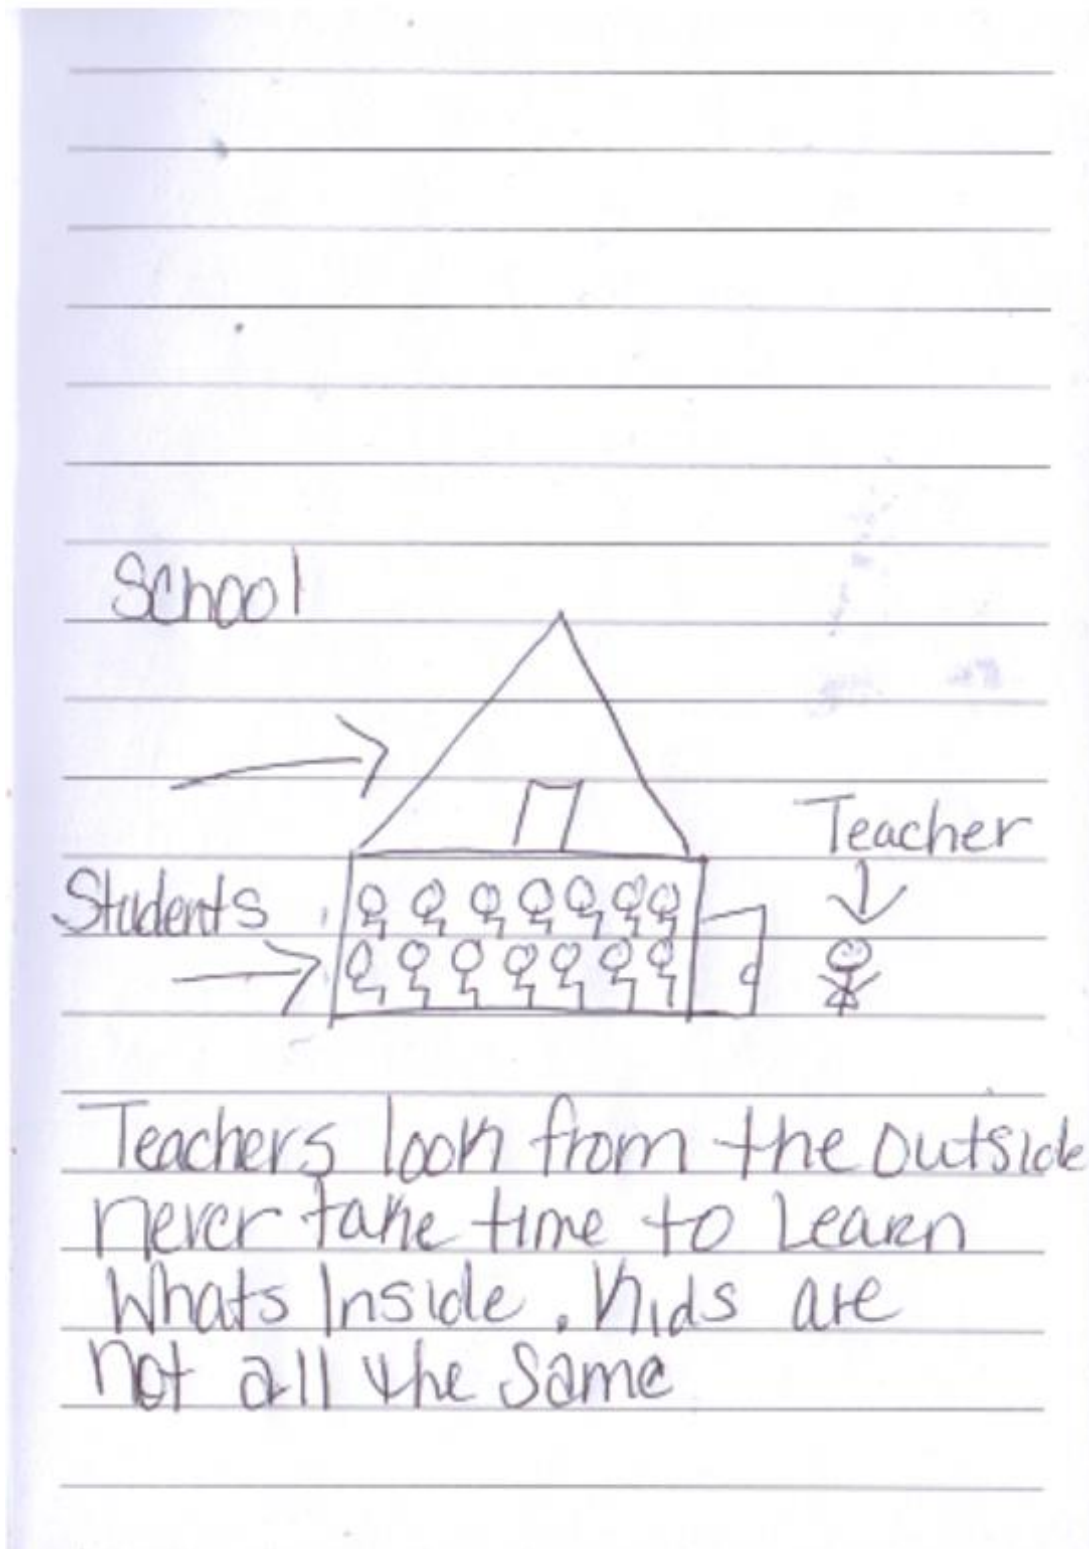 School
Teacher
Students
Teachers look from the outside
never take time to Learn
Whats Inside. Kids are
not all the same